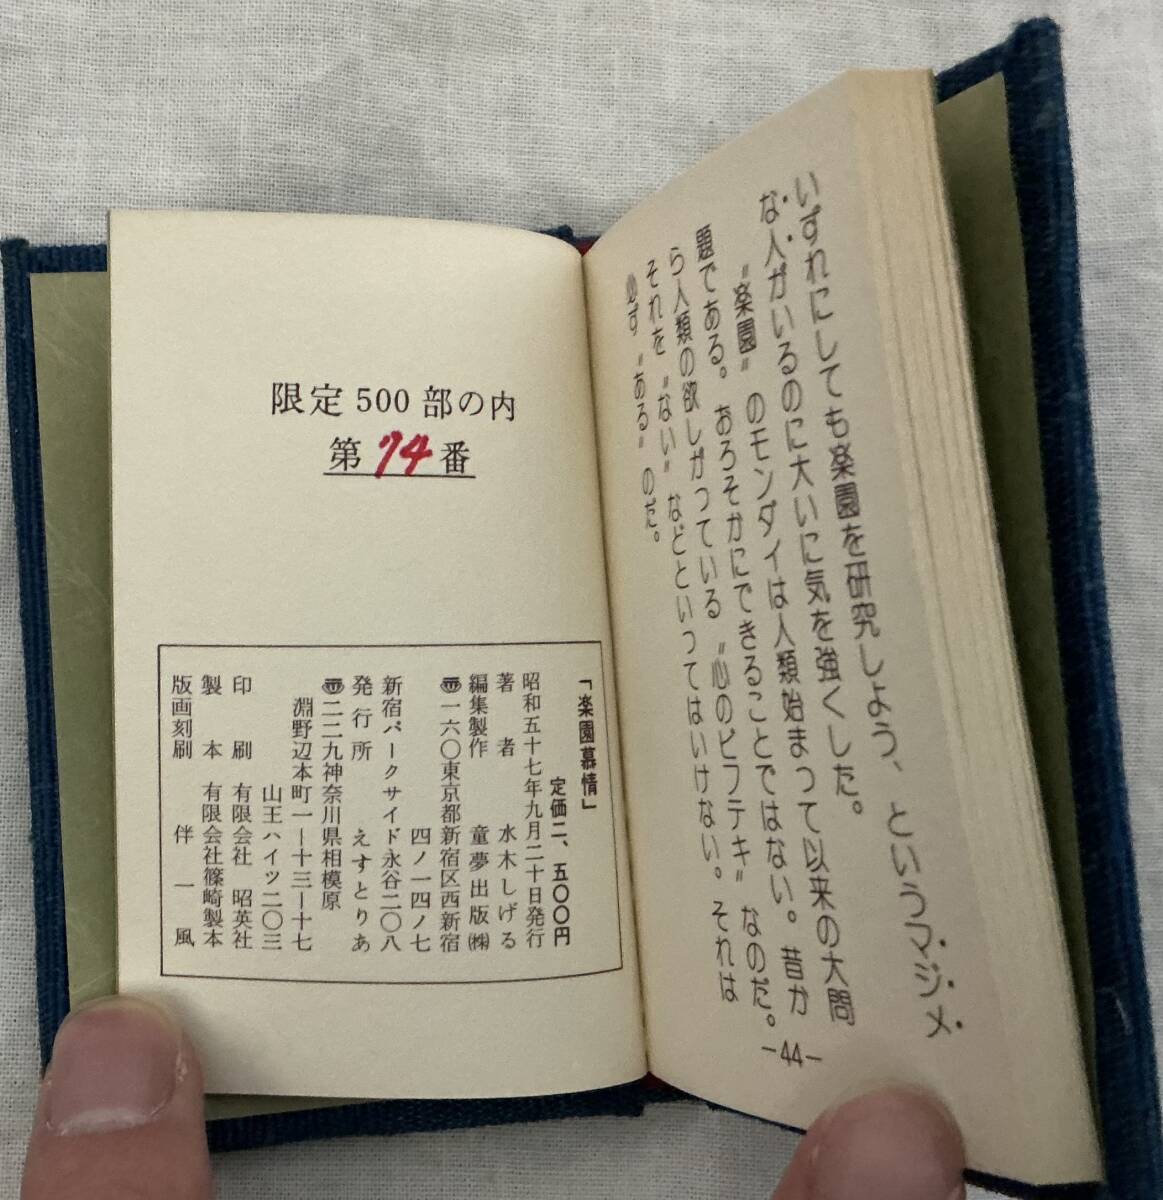 いずれにしても楽園を研究しよう、というマジメ
な人がいるのに大いに気を強くした。
〝楽園〟のモンダイは人類始まって以来の大問
題である。おろそかにできることではない。昔か
ら人類の欲しがっている〝心のビフテキ〟なのだ。
それを〝ない〟などといってはいけない。それは
必ず〝ある〟のだ。
—44—
限定500部の内
第74番
「楽園慕情」
定価二、五〇〇円
昭和五十七年九月二十日発行
著者 水木しげる
編集製作 童夢出版㈱
〠一六〇東京都新宿区西新宿
四ノ一四ノ七
新宿パークサイド永谷二〇八
発行所 えすとりあ
〠二二九神奈川県相模原
淵野辺本町一—十三—十七
山王ハイツ二〇三
印刷 有限会社 昭英社
製本 有限会社篠崎製本
版画刻刷 伴一風